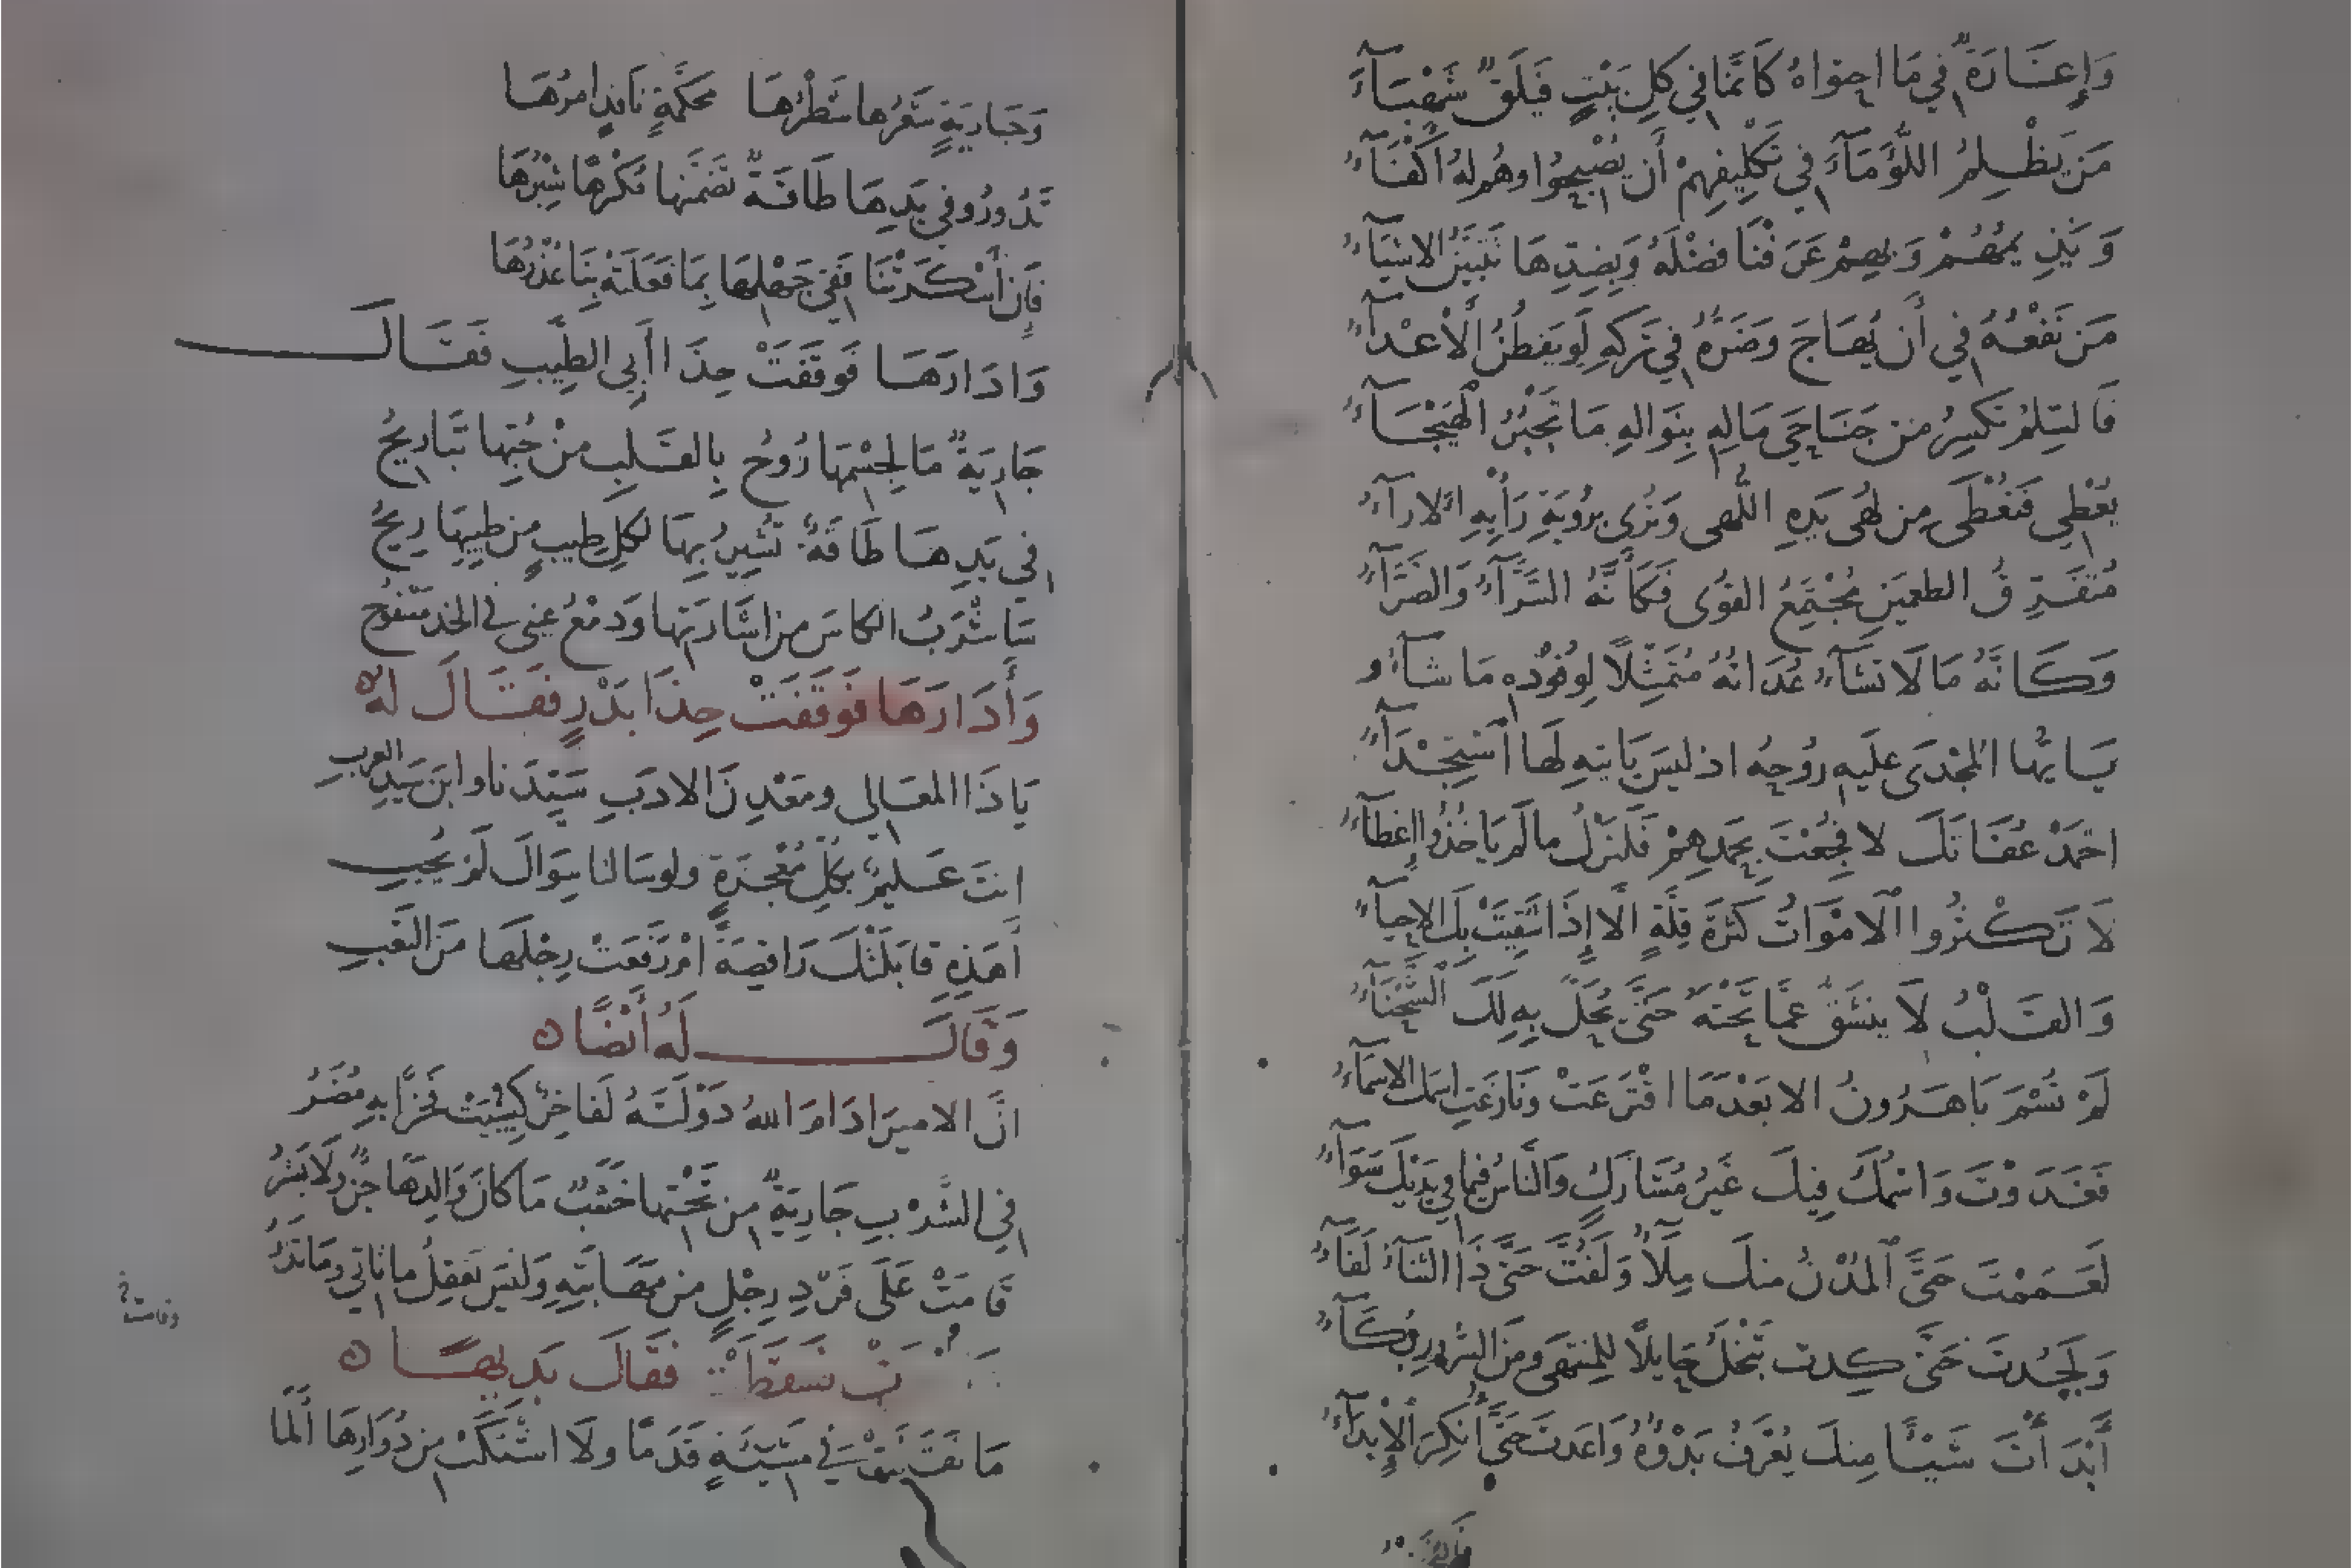 وَإِغَارَةٌ فِي مَا احتواهُ كَأَنَّمَا فِي كُلِّ بَيْتٍ فَيلَقٌ شَهْبَاءُ
مَن يَظْلِمُ اللُّؤَمَاءَ فِي تَكْلِيفِهِمْ أَن يُصْبِحُوا وهُم لهُ أَكْفَاءُ
وَنَذِيمُهُمْ وَبِهِمْ عَرَفْنَا فَضْلَهُ وَبِضِدِّهَا تَتَبَيَّنُ الاشيَاءُ
مَن نَفْعُهُ فِي أَن يُهَاجَ وَضَرُّهُ فِي تَركِهِ لَو يَفطُنُ الأَعْدَاءُ
فَالسِّلمُ تَكسِرُ من جَنَاحَي مَالِهِ بِنَوَالِهِ مَا تَجْبُرُ الهَيْجَاءُ
يُعْطِي فَتُعْطَى مِن لُهَى يَدِهِ اللُّهَى وَتُرَى بِرُؤيَةِ رَأْيِهِ الاراءُ
مُتَفَرِّقُ الطعمَينِ مُجْتَمِعُ القُوَى فَكَأَنَّهُ السَّرَّاءُ وَالضَّرَّاءُ
وَكَأَنَّهُ مَا لَا تَشَاءُ عُدَاتُهُ مُتَمَثِّلًا لِوُفُودِه مَا شَاءُو
يَا أَيُّهَا المُجْدَى عَلَيهِ رُوحُهُ اذ ليسَ يَاتيهِ لَهَا اسْتِجْدَاءُ
احْمَدْ عُفَاتَكَ لا فُجِعْتَ بِحَمدِهِمْ فَلَتَرْكُ ما لَم يَاخُذُوا إِعْطَاءُ
لَا تَكْثُرُ الامْوَاتُ كَثْرَةَ قِلَّةٍ الَّا إِذَا شَقِيَتْ بِكَ الاحيَاءُ
وَالقَلْبُ لَا ينشَقُّ عَمَّا تَحْتَهُ حَتَّى تَحُلَّ بِهِ لَكَ الشَّحْنَاءُ
لَمْ تُسْمَ يَا هَرُونُ الا بَعْدَمَا اقْتَرَعَتْ وَنَازَعَتِ اسمَكَ الاسْمَاءُ
فَغَدَوْتَ وَاسْمُكَ فِيكَ غَيرُ مُشَارَكٍ وَالنَّاسُ فِيمَا فِي يَدَيْكَ سَوَاءُ
لَعَمَمْتَ حَتَّى المُدْنُ منكَ مِلَاءُ وَلَفُتَّ حَتَّى ذَا الثنَاءُ لَفَاءُ
وَلَجُدتَ حَتَّى كِدتَ تَبْخَلُ حَايلًا لِلمُنتَهَى ومنَ السُّرُورِ بُكَاءُ
أَبْدَأْتَ شَيْئًا مِنكَ يُعْرَفُ بَدْؤُهُ وَاعَدتَ حَتَّى أُنكِرَ الإِبدَاءُ
وَجَارِيَةٍ شَعْرُها شَطْرُهَا مُحَكَّمَةٍ نَافِذٍ امرُهَا
تَدُورُ وفي يَدِهَا طَاقَةٌ تَضَمَّنَها مُكْرَهًا شِبْرُهَا
فَإِن أَسْكَرَتْنَا فَفِي جَهْلِهَا بِمَا فَعَلَتْهُ بِنَا عُذْرُهَا
وَادَارَهَا فَوقَفَتْ حِذَا أَبِي الطِيِّبِ فَقَالَ
جَارِيَةٌ مَا لِجِسْمِهَا رُوحُ بِالقَلبِ مِنْ حُبِّهَا تَبَارِيحُ
فِي يَدِهَا طَاقَةٌ تُشِيرُ بِهَا لِكُلِّ طِيبٍ مِن طِيبِهَا رِيحُ
سَاشْرَبُ الكاسَ مِن اشَارَتِهَا وَدمْعُ عيني في الخد مسْفُوحُ
وَأَدَارَهَا فَوقَفَتْ حِذَا بَدْرٍ فَقَالَ لَهُ
يَا ذَا المعَالِي ومَعْدِنَ الادَبِ سَيِّدَنَا وابنَ سَيِّدِ العربِ
انتَ عَلِيمٌ بِكُلِّ مُعْجِزَةٍ ولو سَالنا سِوَاكَ لَمْ يُجِبِ
أَهَذِهِ قَابَلَتْكَ رَاقِصَةً امْ رَفَعَتْ رِجْلَهَا مِنَ التَّعَبِ
وَقَالَ لَهُ أَيْضًا
انَّ الاميرَ ادَامَ اللهُ دَوْلَتَهُ لَفَاخِرٌ كُسِيَتْ فَخْرًا بِهِ مُضَرُ
فِي الشَّرْبِ جَارِيَةٌ مِن تَحْتِهَا خَشَبٌ مَا كَانَ وَالِدَهَا جِنٌّ وَلَا بَشَرُ
قَامَتْ عَلَى فَرْدِ رِجْلٍ مِن مَهَابَتِهِ وَلَيْسَ تَعْقِلُ مَا تَاتِي وَمَا تَذَرُ
فَسَقَطَتْ فَقَالَ بَدِيهًا
مَا نَقَلَتْ في مَشِيئَةٍ قَدَمًا ولَا اشْتَكَتْ مِن دُوَارِهَا أَلَمَا